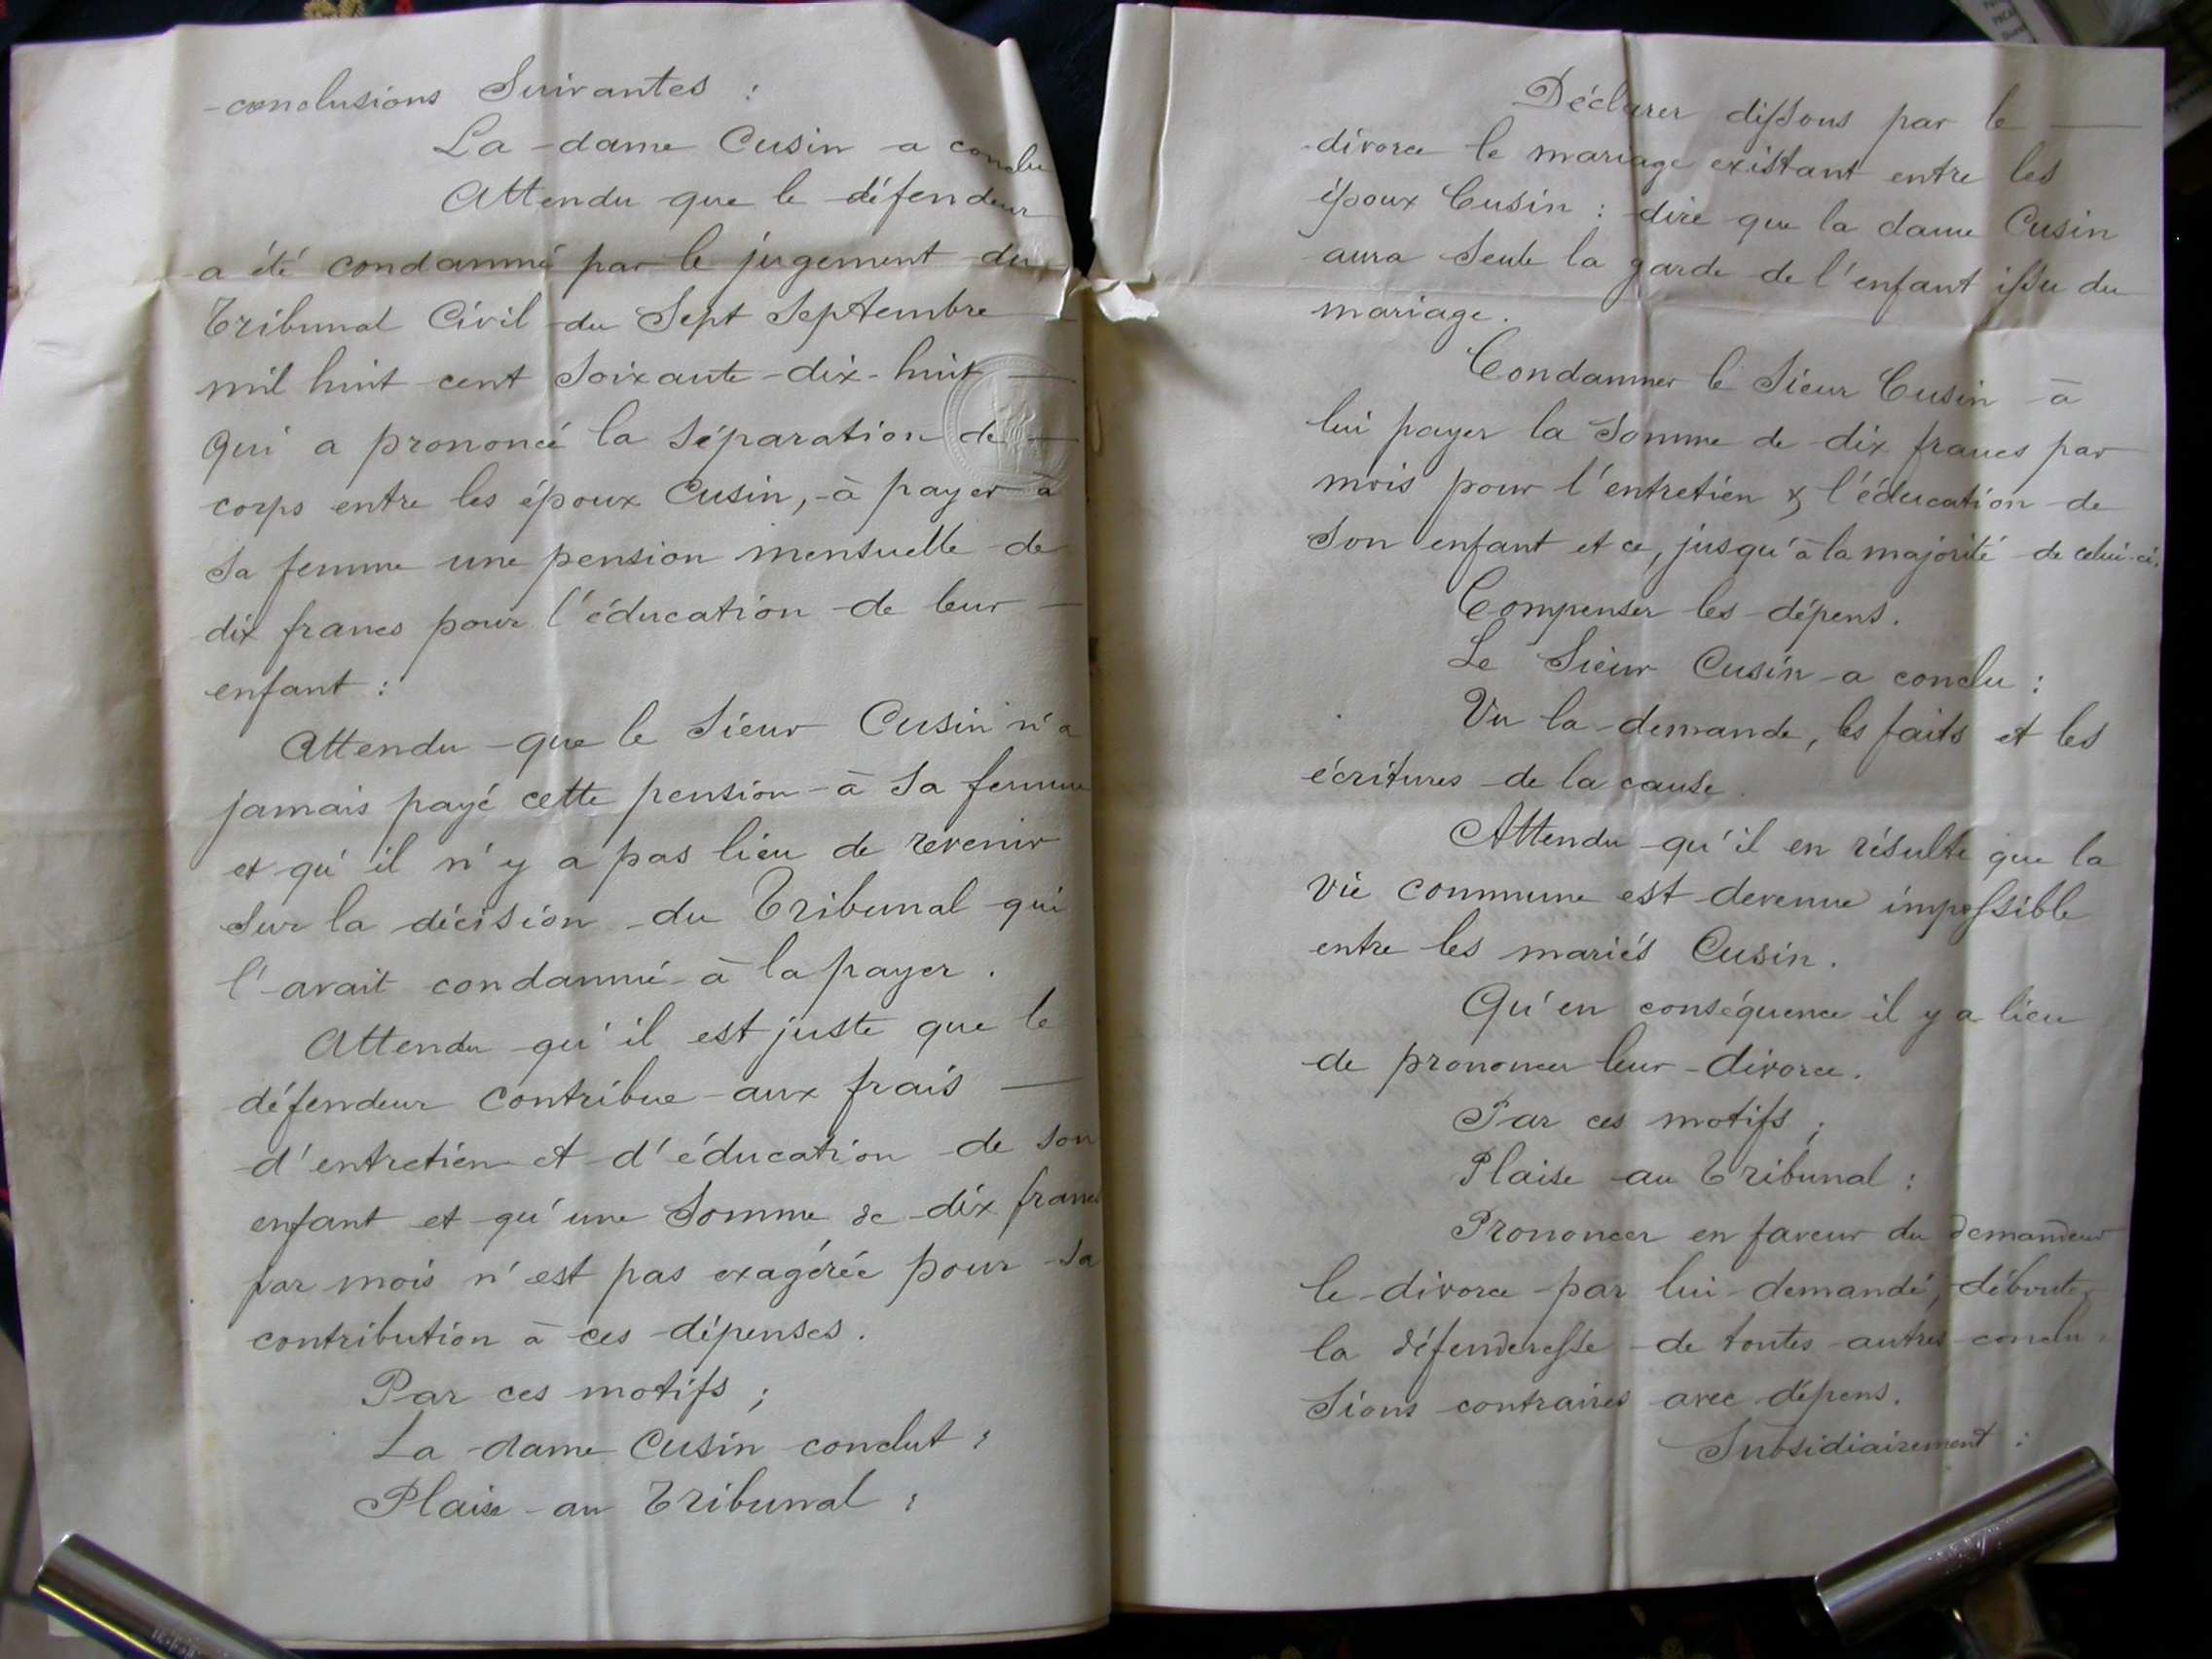 conclusions Suivantes :
La dame Cusin a conclu
Attendu que le défendeur
a été condamné par le jugement du
Tribunal Civil du Sept Septembre
mil huit cent Soixante-dix-huit
qui a prononcé la Séparation de
corps entre les époux Cusin, à payer à
Sa femme une pension mensuelle de
dix francs pour l'éducation de leur
enfant :
Attendu que le Sieur Cusin n'a
jamais payé cette pension à Sa femme
et qu'il n'y a pas lieu de revenir
Sur la décision du Tribunal qui
l'avait condamné à la payer.
Attendu qu'il est juste que le
défendeur contribue aux frais
d'entretien et d'éducation de Son
enfant et qu'une Somme de dix francs
par mois n'est pas exagérée pour Sa
contribution à ces dépenses.
Par ces motifs ;
La dame Cusin conclut :
Plaise au Tribunal :
Déclarer dissous par le
divorce le mariage existant entre les
époux Cusin : dire que la dame Cusin
aura Seule la garde de l'enfant issu du
mariage.
Condamner le Sieur Cusin à
lui payer la Somme de dix francs par
mois pour l'entretien & l'éducation de
Son enfant et ce, jusqu'à la majorité de celui-ci.
Compenser les dépens.
Le Sieur Cusin a conclu :
Vu la demande, les faits et les
écritures de la cause.
Attendu qu'il en résulte que la
vie commune est devenue impossible
entre les mariés Cusin.
Qu'en conséquence il y a lieu
de prononcer leur divorce.
Par ces motifs ;
Plaise au Tribunal :
Prononcer en faveur du demandeur
le divorce par lui demandé, débouter
la défenderesse de toutes autres conclu=
Sions contraires avec dépens.
Subsidiairement :